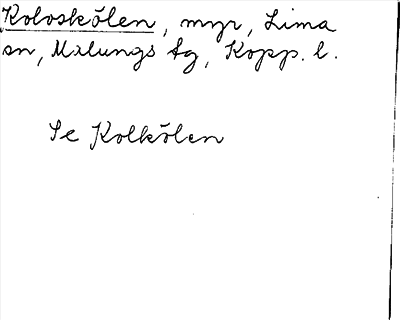 Koloskölen, myr, Lima
sn, Malungs tg, Kopp. l.
Se Kolkölen